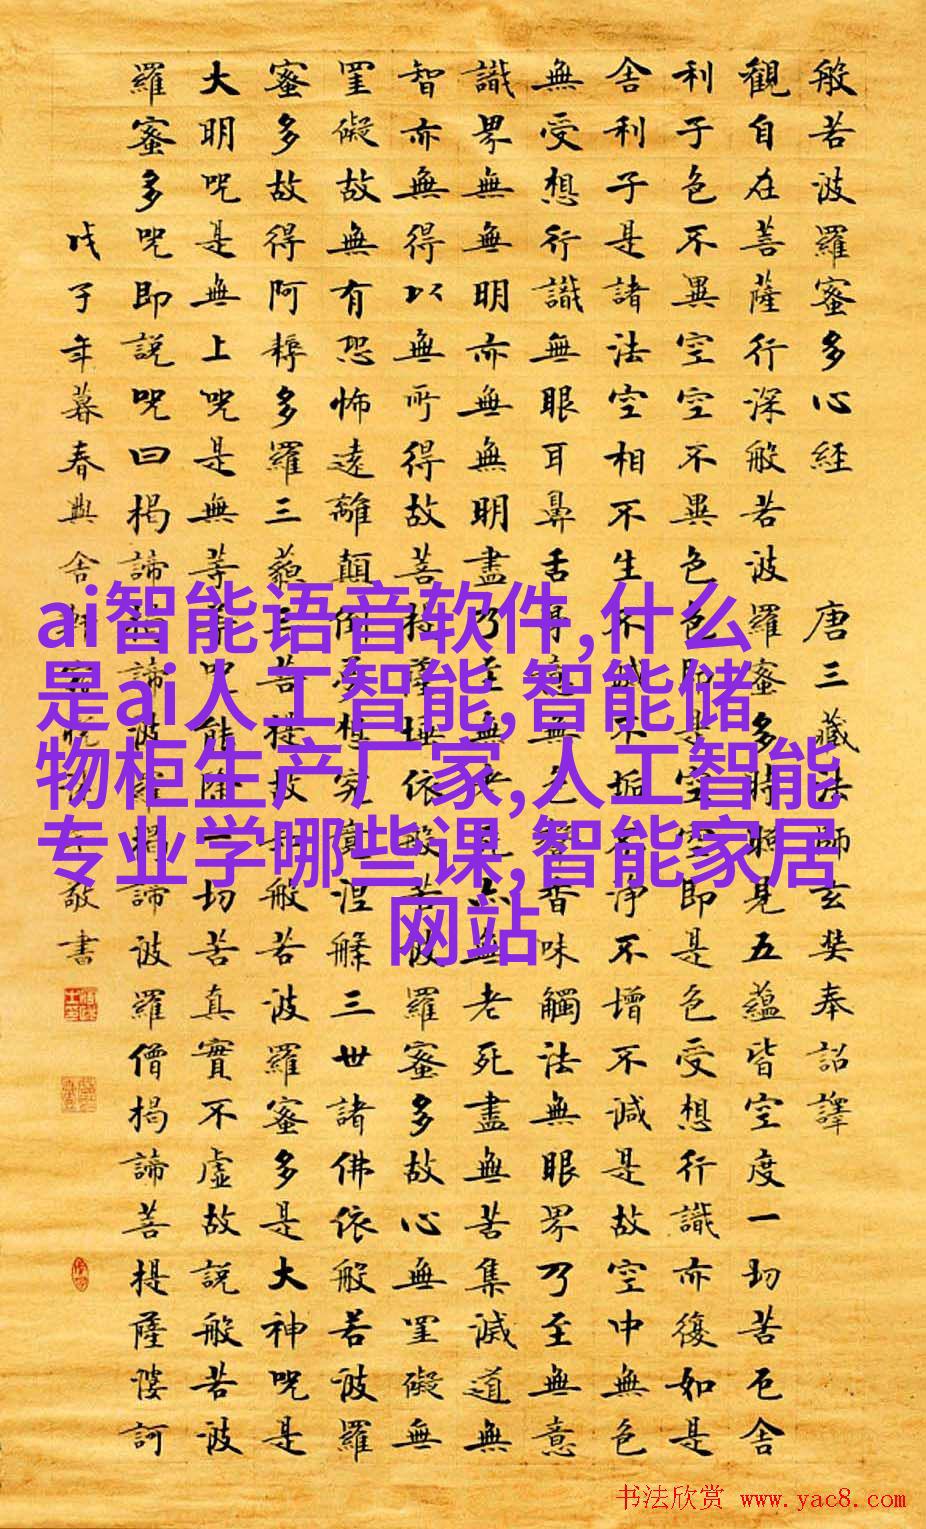 般若波羅蜜多心經 唐三藏法師玄奘奉詔譯
觀自在菩薩行深般若波羅蜜多時照見五蘊皆空度一切苦厄舍
利子色不異空空不異色色即是空空即是色受想行識亦復如是
舍利子是諸法空相不生不滅不垢不淨不增不減是故空中無色
無受想行識無眼耳鼻舌身意無色聲香味觸法無眼界乃至無意
識界無無明亦無無明盡乃至無老死亦無老死盡無苦集滅道無
智亦無得以無所得故菩提薩埵依般若波羅蜜多故心無罣礙無
罣礙故無有恐怖遠離顛倒夢想究竟涅槃三世諸佛依般若波羅
蜜多故得阿耨多羅三藐三菩提故知般若波羅蜜多是大神呪是
大明呪是無上呪是無等等呪能除一切苦真實不虛故說般若波
羅蜜多呪即說呪曰揭諦揭諦波羅揭諦波羅僧揭諦菩提薩婆訶
戊子年暮春 敬書
ai智能语音软件,什么
是ai人工智能,智能储
物柜生产厂家,人工智能
专业学哪些课,智能家居
网站
书法欣赏 www.yac8.com